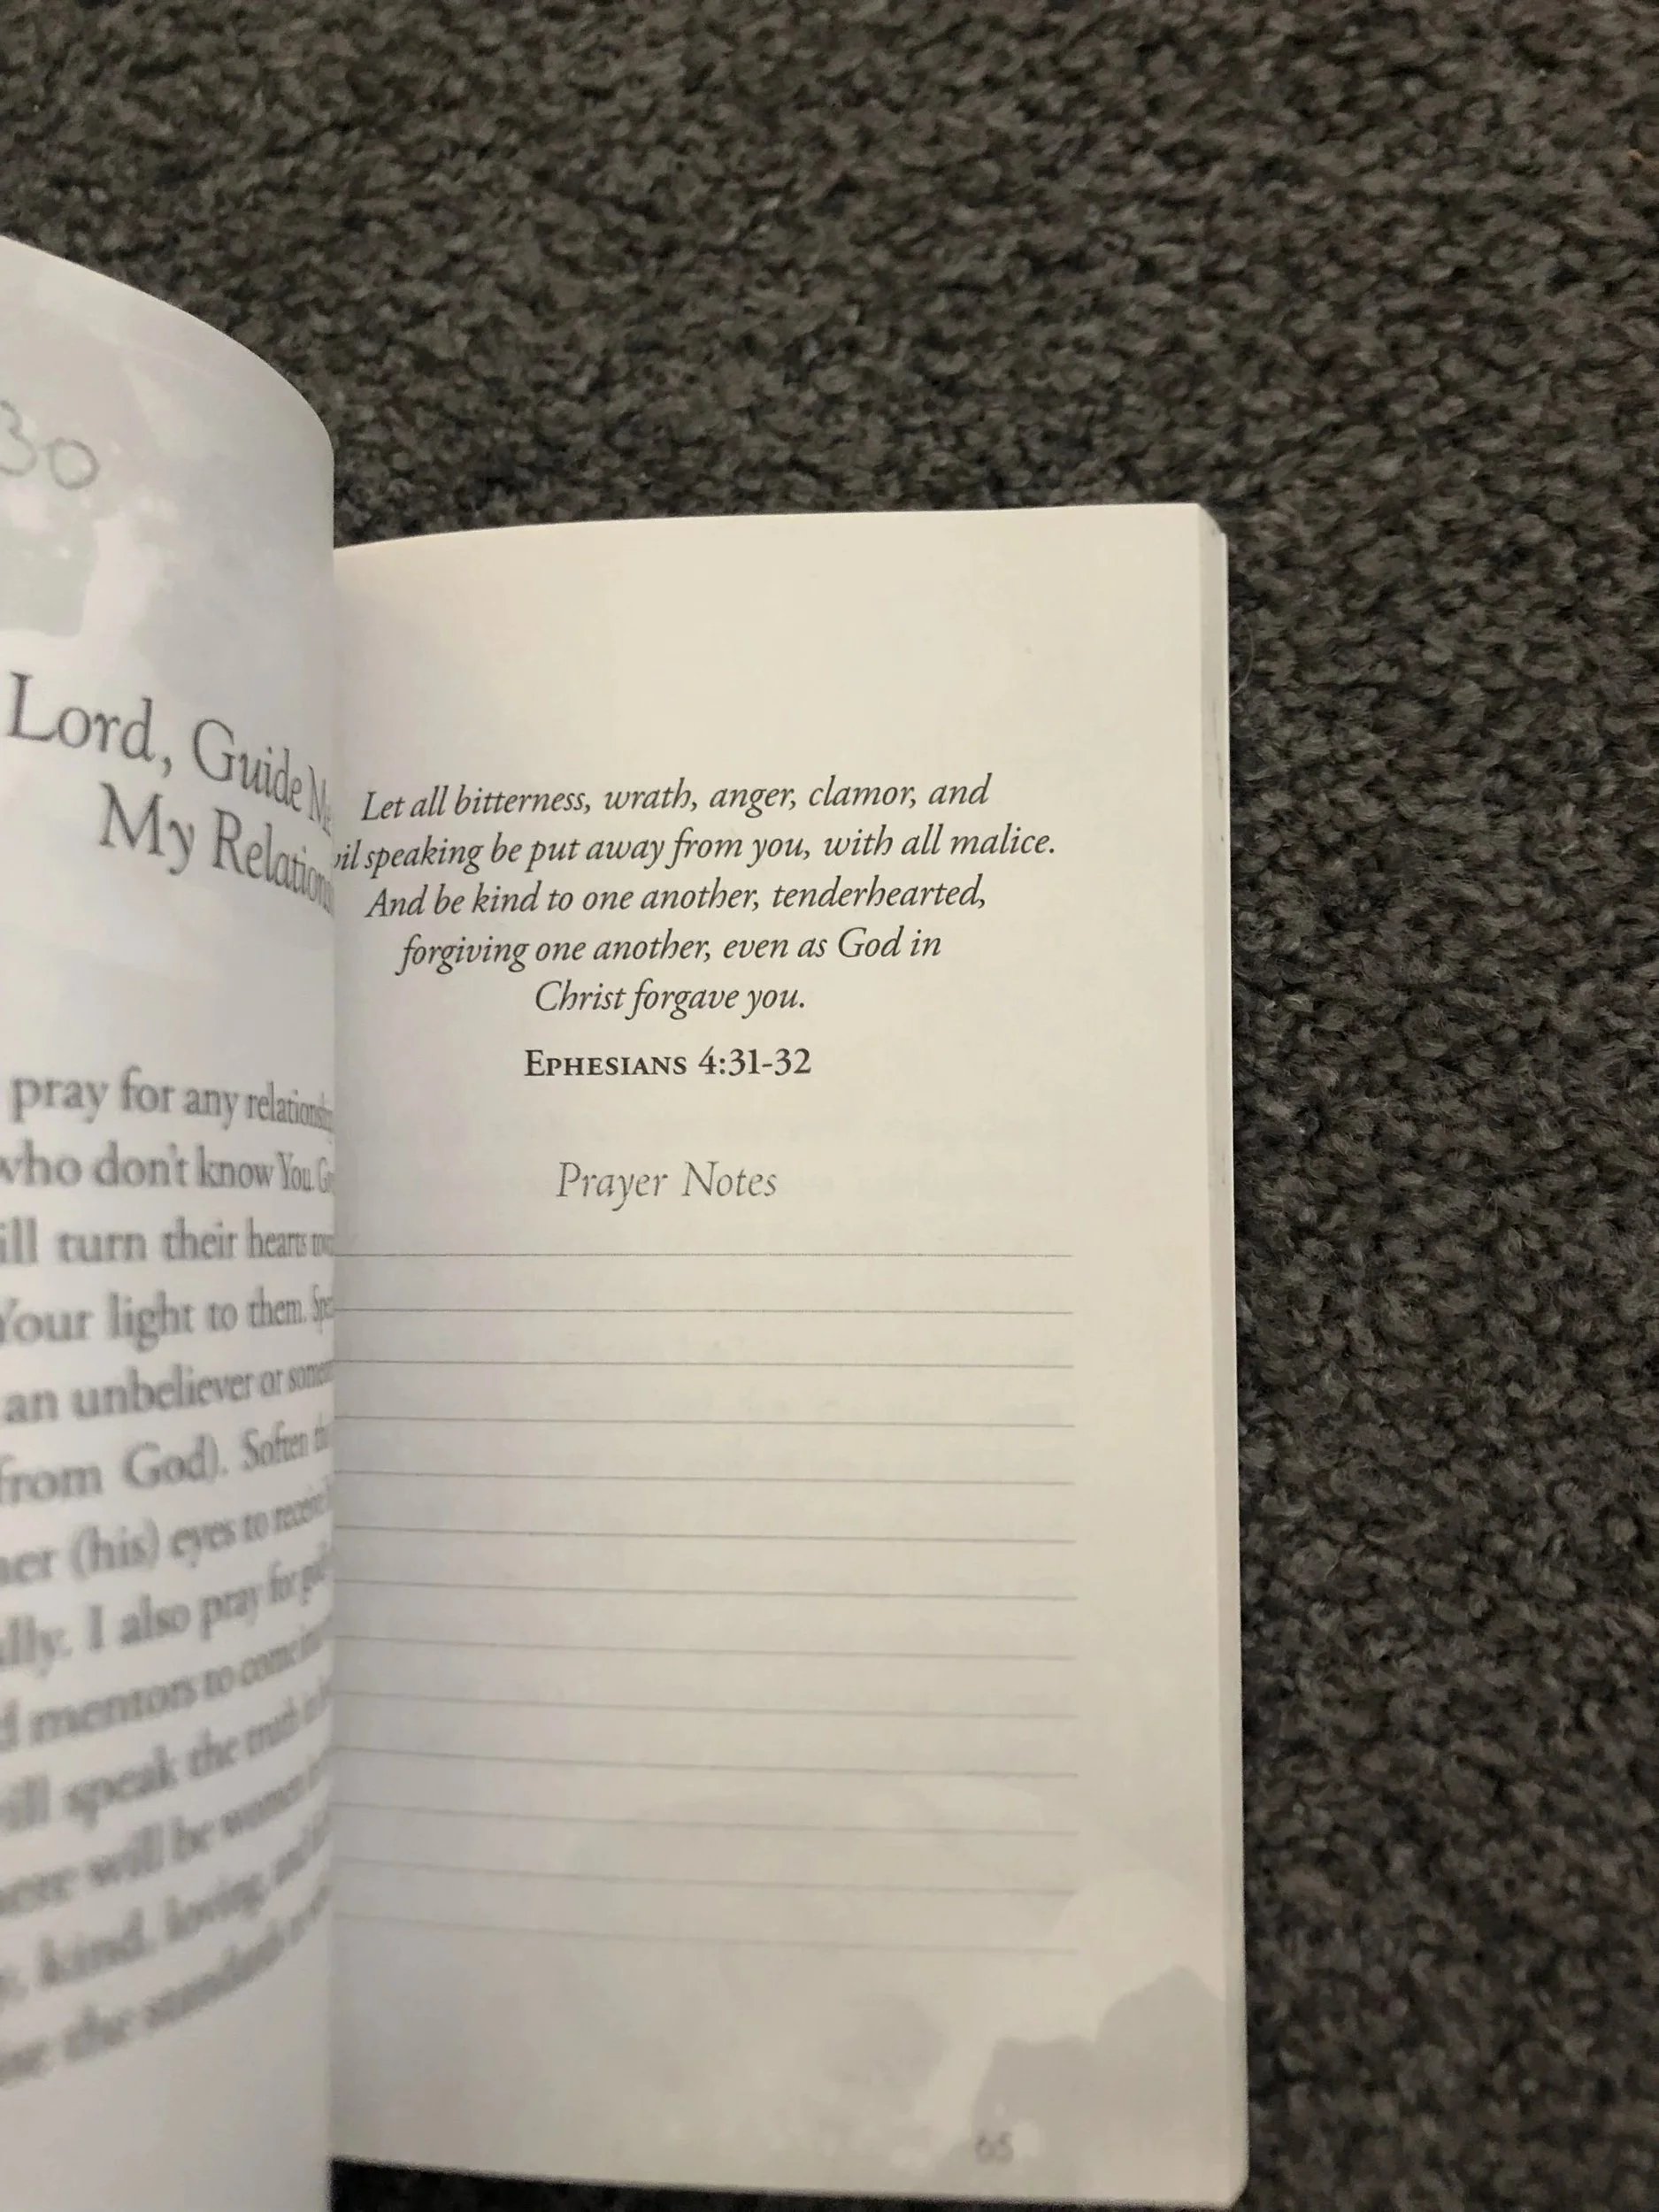 30
Lord, Guide Me
My Relation
pray for any relationship
who don't know You.
ill turn their hearts
Your light to them.
an unbeliever or
from God). Soften
her (his) eyes to receive
lly. I also pray for
d mentors to come
ill speak the truth in
here will be women
kind, loving, and
the standards
Let all bitterness, wrath, anger, clamor, and
vil speaking be put away from you, with all malice.
And be kind to one another, tenderhearted,
forgiving one another, even as God in
Christ forgave you.
EPHESIANS 4:31-32
Prayer Notes
65